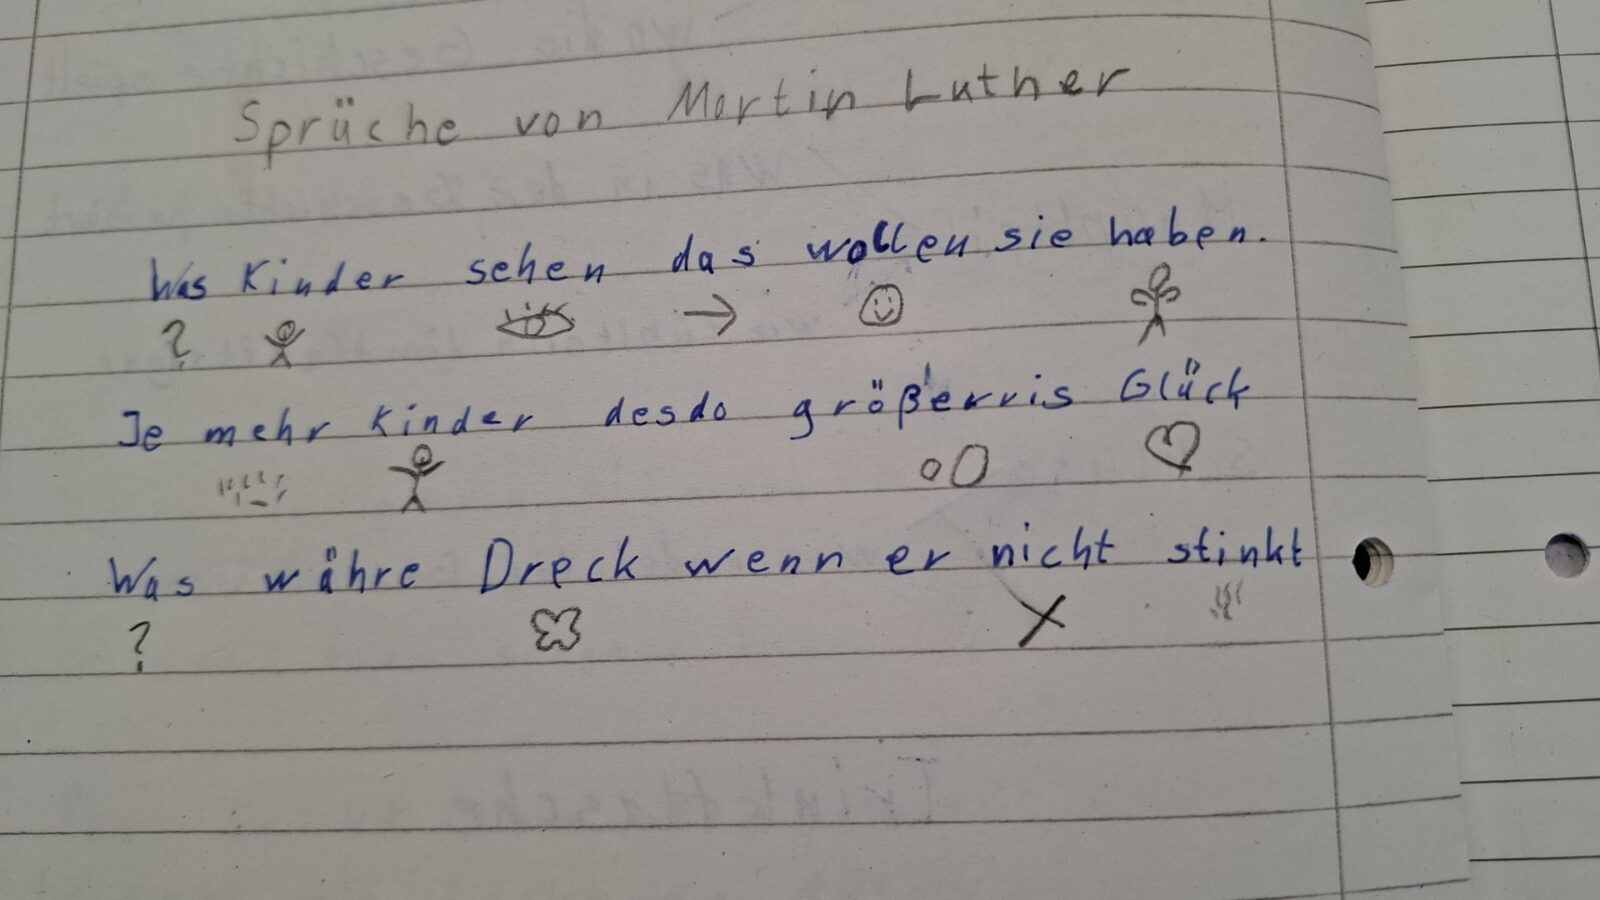 Sprüche von Martin Luther
Was Kinder sehen das wollen sie haben.
?
Je mehr Kinder desdo größer ris Glück
Was währe Dreck wenn er nicht stinkt
?